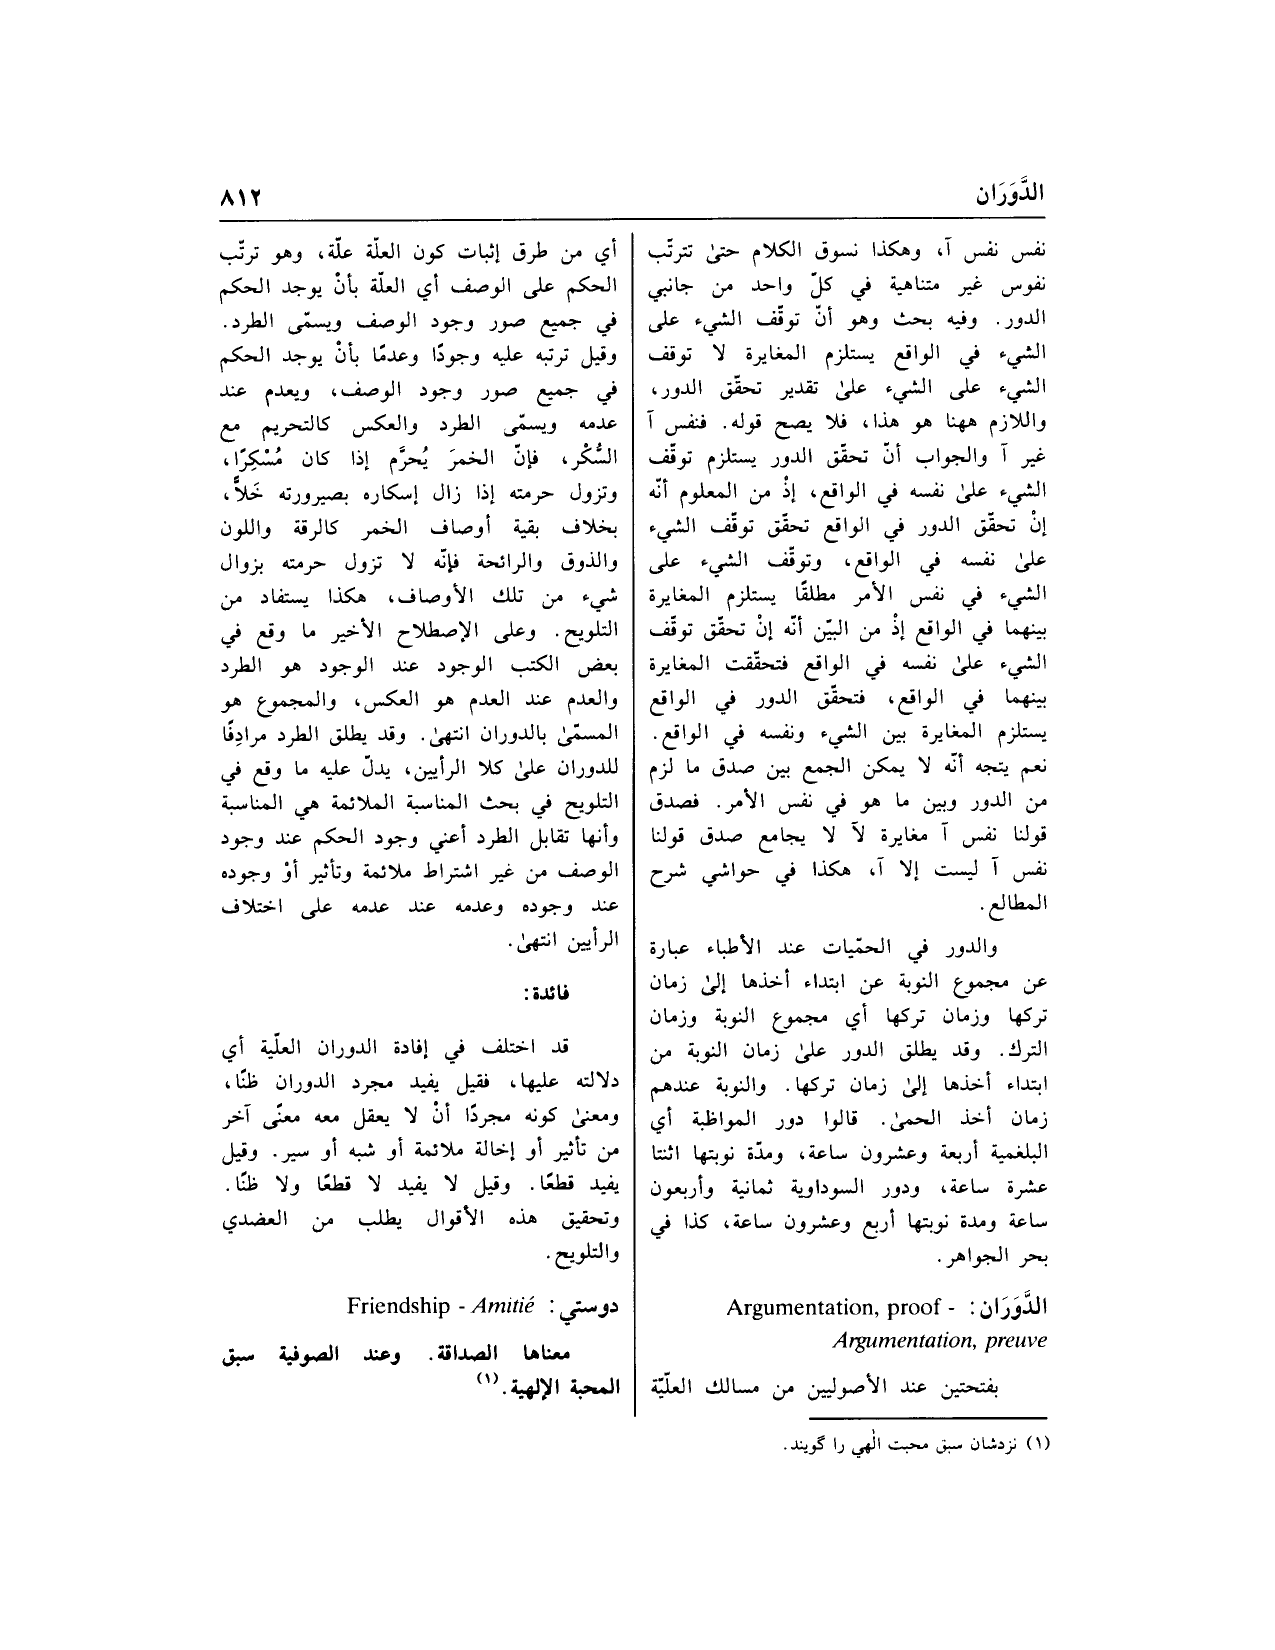 الدَّوَرَان
٨١٢
نفس نفس آ، وهكذا نسوق الكلام حتىٰ تترتّب
نفوس غير متناهية في كلّ واحد من جانبي
الدور. وفيه بحث وهو أنّ توقّف الشيء على
الشيء في الواقع يستلزم المغايرة لا توقف
الشيء على الشيء علىٰ تقدير تحقّق الدور،
واللازم ههنا هو هذا، فلا يصح قوله. فنفس آ
غير آ والجواب أنّ تحقّق الدور يستلزم توقّف
الشيء علىٰ نفسه في الواقع، إذْ من المعلوم أنّه
إنْ تحقّق الدور في الواقع تحقّق توقّف الشيء
علىٰ نفسه في الواقع، وتوقّف الشيء على
الشيء في نفس الأمر مطلقًا يستلزم المغايرة
بينهما في الواقع إذْ من البيّن أنّه إنْ تحقّق توقّف
الشيء علىٰ نفسه في الواقع فتحقّقت المغايرة
بينهما في الواقع، فتحقّق الدور في الواقع
يستلزم المغايرة بين الشيء ونفسه في الواقع.
نعم يتجه أنّه لا يمكن الجمع بين صدق ما لزم
من الدور وبين ما هو في نفس الأمر. فصدق
قولنا نفس آ مغايرة لآ لا يجامع صدق قولنا
نفس آ ليست إلا آ، هكذا في حواشي شرح
المطالع.
والدور في الحمّيات عند الأطباء عبارة
عن مجموع النوبة عن ابتداء أخذها إلىٰ زمان
تركها وزمان تركها أي مجموع النوبة وزمان
الترك. وقد يطلق الدور علىٰ زمان النوبة من
ابتداء أخذها إلىٰ زمان تركها. والنوبة عندهم
زمان أخذ الحمىٰ. قالوا دور المواظبة أي
البلغمية أربعة وعشرون ساعة، ومدّة نوبتها اثنتا
عشرة ساعة، ودور السوداوية ثمانية وأربعون
ساعة ومدة نوبتها أربع وعشرون ساعة، كذا في
بحر الجواهر.
الدَّوَرَان: Argumentation, proof -
Argumentation, preuve
بفتحتين عند الأصوليين من مسالك العلّيّة
أي من طرق إثبات كون العلّة علّة، وهو ترتّب
الحكم على الوصف أي العلّة بأنْ يوجد الحكم
في جميع صور وجود الوصف ويسمّى الطرد.
وقيل ترتبه عليه وجودًا وعدمًا بأنْ يوجد الحكم
في جميع صور وجود الوصف، ويعدم عند
عدمه ويسمّى الطرد والعكس كالتحريم مع
السُّكْر، فإنّ الخمرَ يُحرَّم إذا كان مُسْكِرًا،
وتزول حرمته إذا زال إسكاره بصيرورته خَلاًّ،
بخلاف بقية أوصاف الخمر كالرقة واللون
والذوق والرائحة فإنّه لا تزول حرمته بزوال
شيء من تلك الأوصاف، هكذا يستفاد من
التلويح. وعلى الإصطلاح الأخير ما وقع في
بعض الكتب الوجود عند الوجود هو الطرد
والعدم عند العدم هو العكس، والمجموع هو
المسمّىٰ بالدوران انتهىٰ. وقد يطلق الطرد مرادِفًا
للدوران علىٰ كلا الرأيين، يدلّ عليه ما وقع في
التلويح في بحث المناسبة الملائمة هي المناسبة
وأنها تقابل الطرد أعني وجود الحكم عند وجود
الوصف من غير اشتراط ملائمة وتأثير أوْ وجوده
عند وجوده وعدمه عند عدمه على اختلاف
الرأيين انتهىٰ.
فائدة:
قد اختلف في إفادة الدوران العلّية أي
دلالته عليها، فقيل يفيد مجرد الدوران ظنًا،
ومعنىٰ كونه مجردًا أنْ لا يعقل معه معنًى آخر
من تأثير أو إخالة ملائمة أو شبه أو سير. وقيل
يفيد قطعًا. وقيل لا يفيد لا قطعًا ولا ظنًا.
وتحقيق هذه الأقوال يطلب من العضدي
والتلويح.
دوستي: Friendship - Amitié
معناها الصداقة. وعند الصوفية سبق
المحبة الإلهية.(١)
(١) نزدشان سبق محبت الٰهي را گويند.